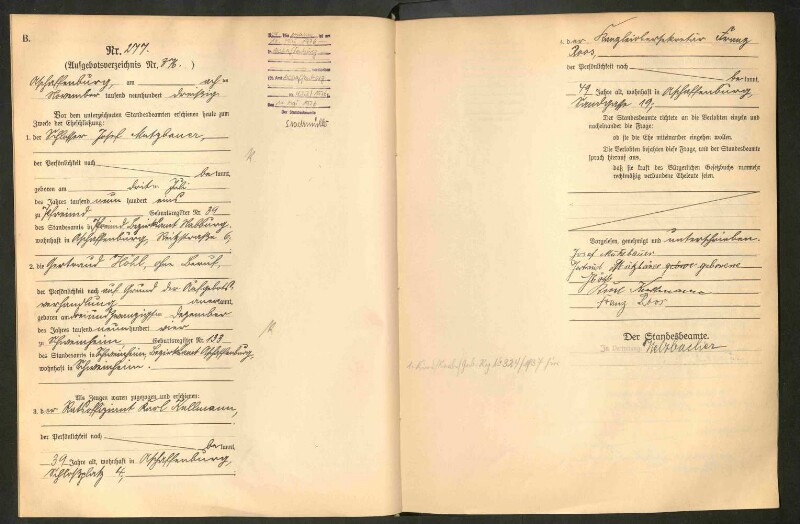 B.
Nr. 277.
(Aufgebotsverzeichnis Nr. 276.)
Aschaffenburg, am achten
November tausend neunhundert dreißig
Vor dem unterzeichneten Standesbeamten erschienen heute zum
Zwecke der Eheschließung:
1. der Schlosser Josef
der Persönlichkeit nach
be kannt,
geboren am dritten Juli
des Jahres tausend neun hundert eins
zu Pfreimd Geburtsregister Nr. 39
des Standesamts in Pfreimd, Bezirksamt Nabburg,
wohnhaft in Aschaffenburg, 6,
2. die Gertraud Höhl, ohne Beruf,
der Persönlichkeit nach auf Grund der Aufgebots
verhandlung anerkannt,
geboren am dreiundzwanzigsten Dezember
des Jahres tausend neunhundert vier
zu Schweinheim Geburtsregister Nr. 133
des Standesamts in Schweinheim, Bezirksamt Aschaffenburg,
wohnhaft in Schweinheim.
Als Zeugen waren zugezogen und erschienen:
3. der Karl Kullmann,
der Persönlichkeit nach
be kannt,
39 Jahre alt, wohnhaft in Aschaffenburg,
Schloßplatz 4,
Der Standesbeamte
4. der Kanzleisekretär Franz
Roos
der Persönlichkeit nach
be kannt,
49 Jahre alt, wohnhaft in Aschaffenburg,
19,
Der Standesbeamte richtete an die Verlobten einzeln und
nacheinander die Frage:
ob sie die Ehe miteinander eingehen wollen.
Die Verlobten bejahten diese Frage, und der Standesbeamte
sprach hierauf aus,
daß sie kraft des Bürgerlichen Gesetzbuchs nunmehr
rechtmäßig verbundene Eheleute seien.
Vorgelesen, genehmigt und unterschrieben.
Josef
geborene
Höhl
Karl Kullmann
Franz Roos
Der Standesbeamte.
In Vertretung: